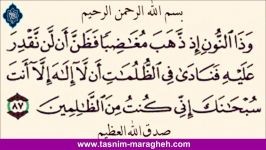 بسم الله الرحمن الرحیم
وَذَا ٱلنُّونِ إِذ ذَّهَبَ مُغَـٰضِبًا فَظَنَّ أَن لَّن نَّقْدِرَ
عَلَيْهِ فَنَادَىٰ فِى ٱلظُّلُمَـٰتِ أَن لَّآ إِلَـٰهَ إِلَّآ أَنتَ
سُبْحَـٰنَكَ إِنِّى كُنتُ مِنَ ٱلظَّـٰلِمِينَ ٨٧
صدق الله العظیم
www.tasnim-maragheh.com